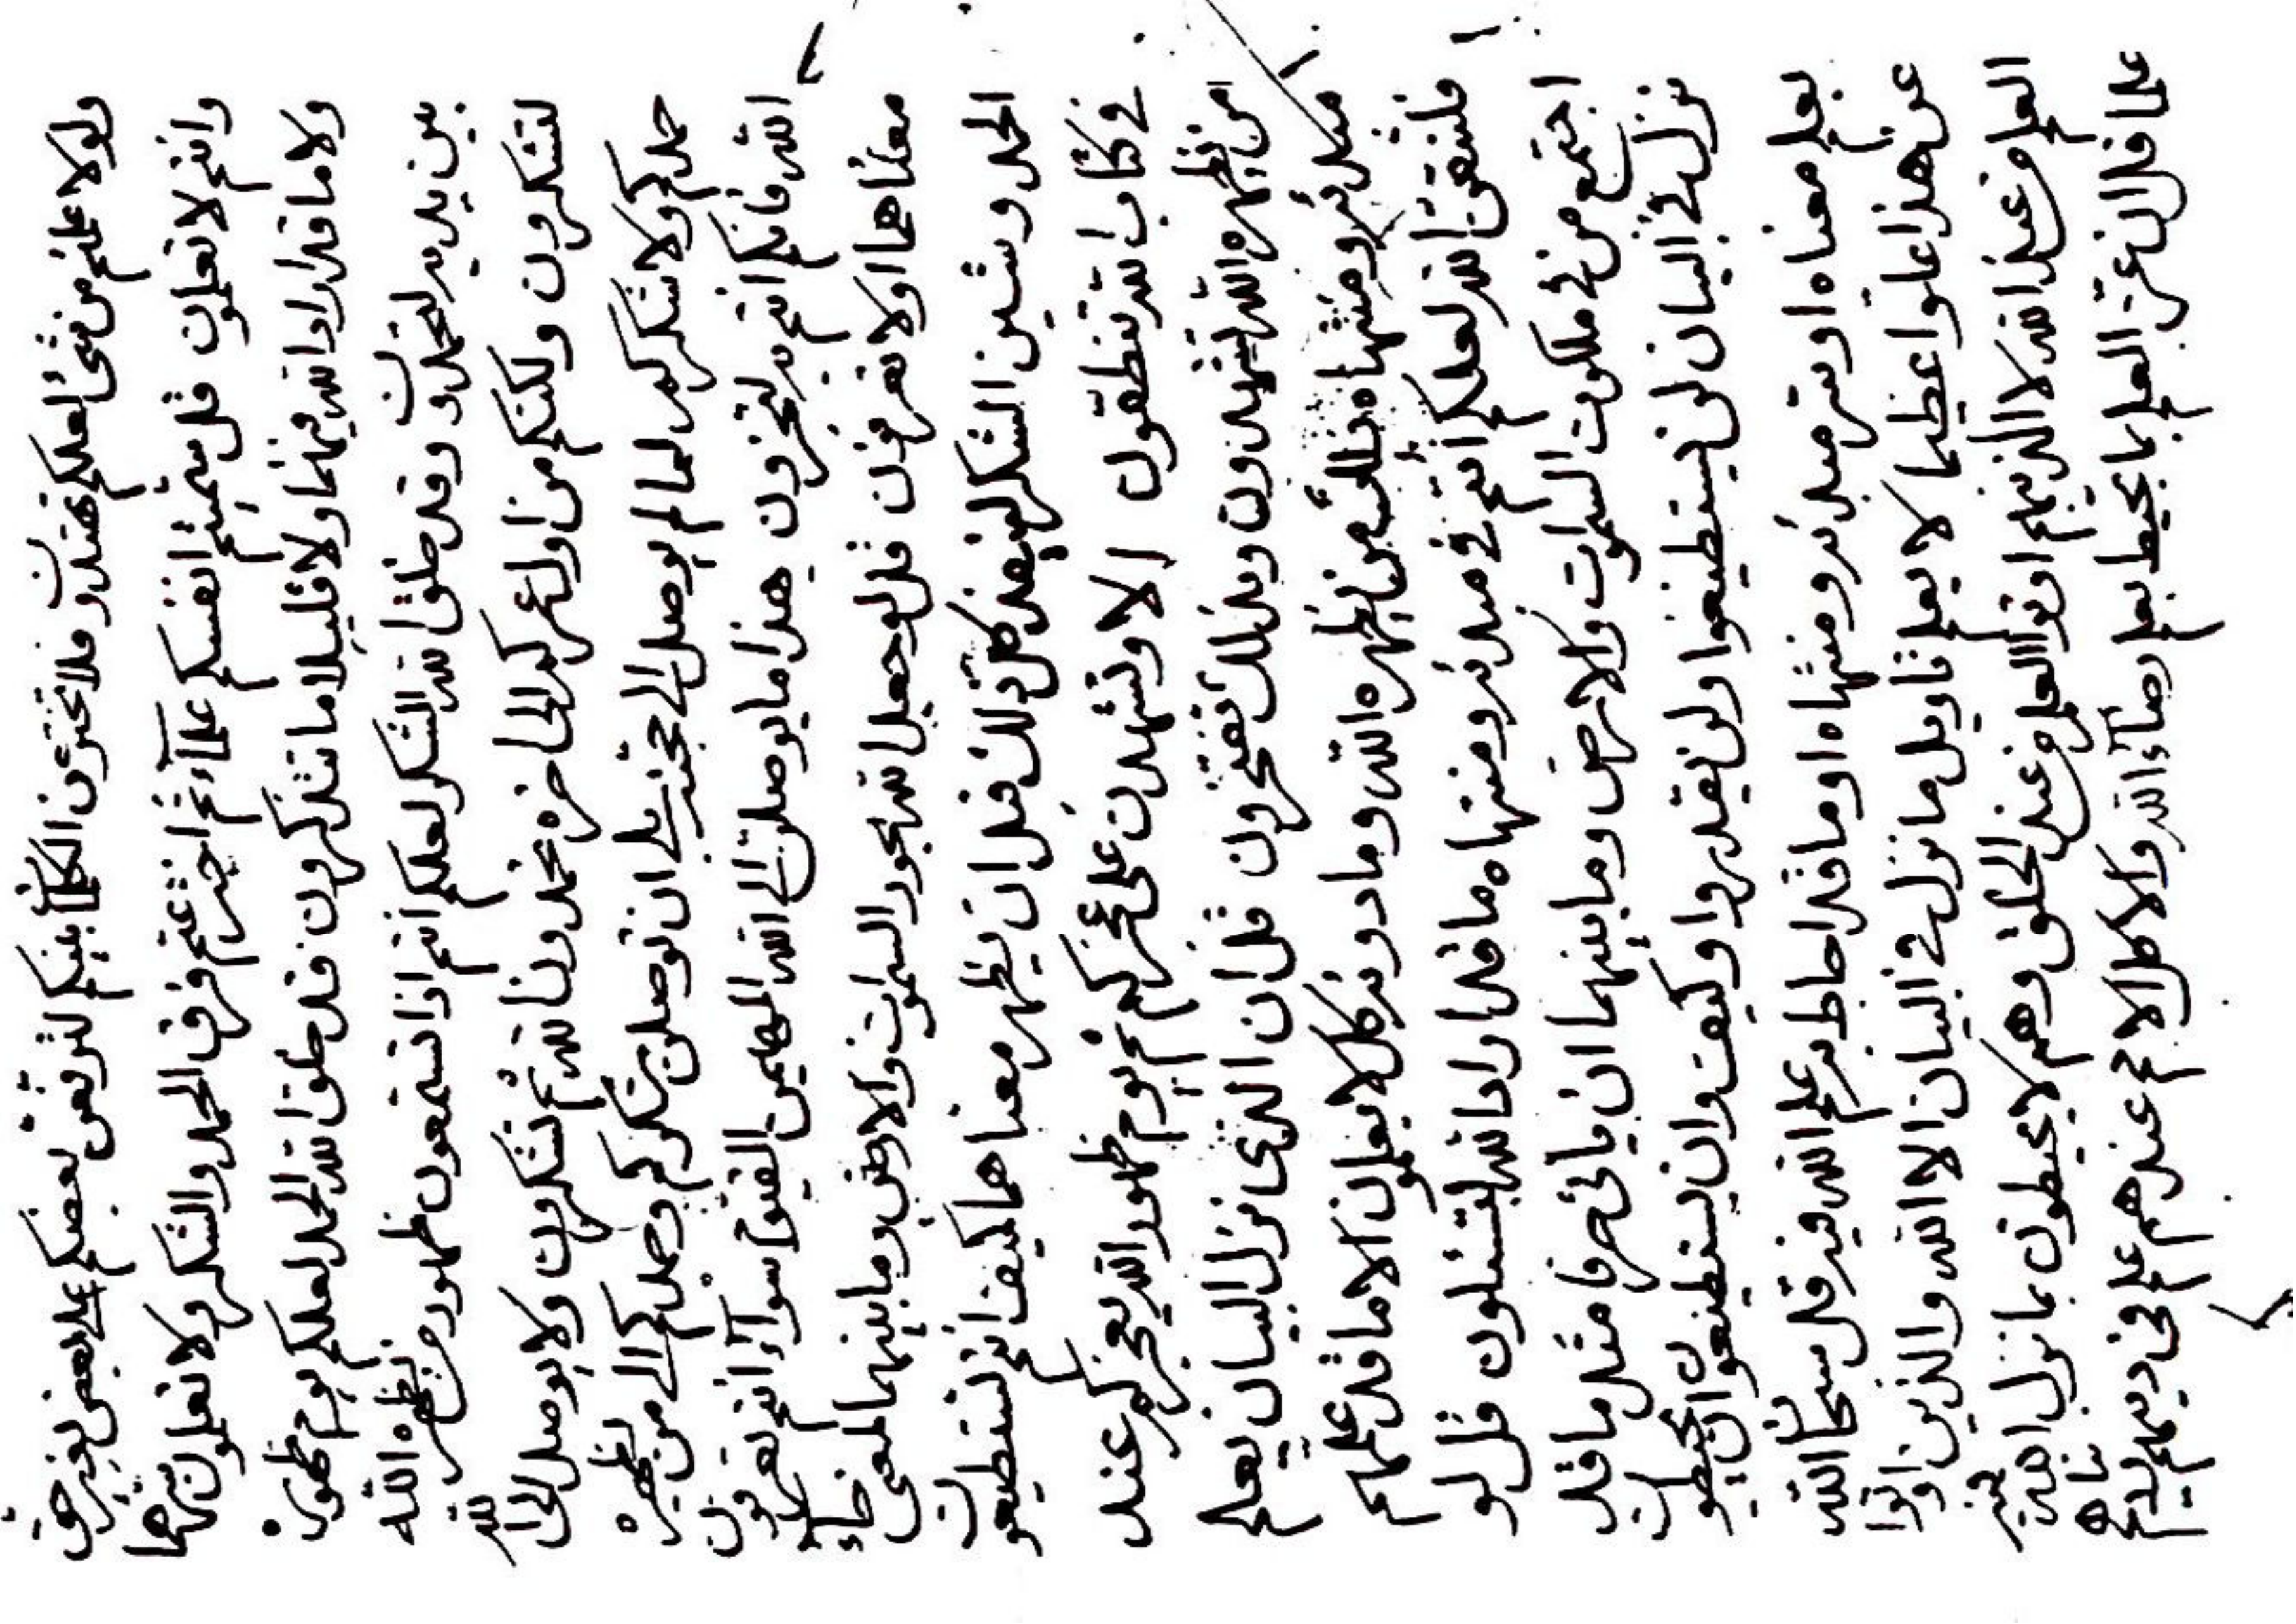 ولولا علمتم من شئ لعلكم تهتدون فلا تحترن الكلمة بينكم لترفعن بعضكم على بعض لغير حق
وانتم لا تعلمون قل سميتم انفسكم علماء ثم اخترعتم فرق الحمد والشكر ولا تعلمون سرهما
ولا ما قد اراد الله فيهما ولا قليلا ما تتذكرون قد خلق الله الحمد لعلكم يوم ظهوره
بين يديه لتحمدون وقد خلق الله الشكر لعلكم انتم اذا تسمعون ظهور من يظهره الله
لتشكرون ولكنكم من اول عمركم الى اخره تحمدون الله ثم تشكرون ولا يوصل الى الله
حمدكم ولا شكركم لما لم يوصل الى حجته بلى ان توصلن شكركم وحمدكم الى من يظهره
الله فانكم انتم به لتجزون هذا ما يوصلن الى الله المهيمن القيوم سواء انتم تعرفون
معناهما او لا تعرفون قل لو جعل الله بحور السموات والارض وما بينهما لمعنى حاء
الحمد وشين الشكر لينفد كل ذلك قل ان يظهر معناهما كيف انتم تستطيعون
في كتاب الله تنطقون الا وتشهدن على عجزكم ثم يوم ظهور الله يعجزكم عند
من يظهره الله لتشهدون وبذلك تفتخرون قل ان الذي نزل البيان يعلم
مبدئه ومنتهاه ذلك من يظهره الله وما دونه كل لا يعلمون الا ما قد علمهم
فلتتقن الله لعلكم انتم في مبدئه ومنتهاه ما قد اراد الله لتسئلون قل لو
اجتمع من في ملكوت السموات والارض وما بينهما ان ياتى حرفا مثل ما قد
نزل في البيان لن يستطيعوا ولن يقدروا وكيف وان يستطيعوا ان يحيطون
بعلم معناه او سر مبدئه ومنتهاه او ما قد احاط به علم الله فيه قل سبحان الله
عن هذا علوا عظيما لا يعلم تاويل ما نزل في البيان الا الله والذين اوتوا
العلم من عند الله لا الذينهم اوتوا العلم من عند الخلق وهم لا يحيطون بما نزل الله فيه
علما قل ان عز العلم بما يحيط بعلم رضاء الله والا كل الامم عندهم علم فى دينهم